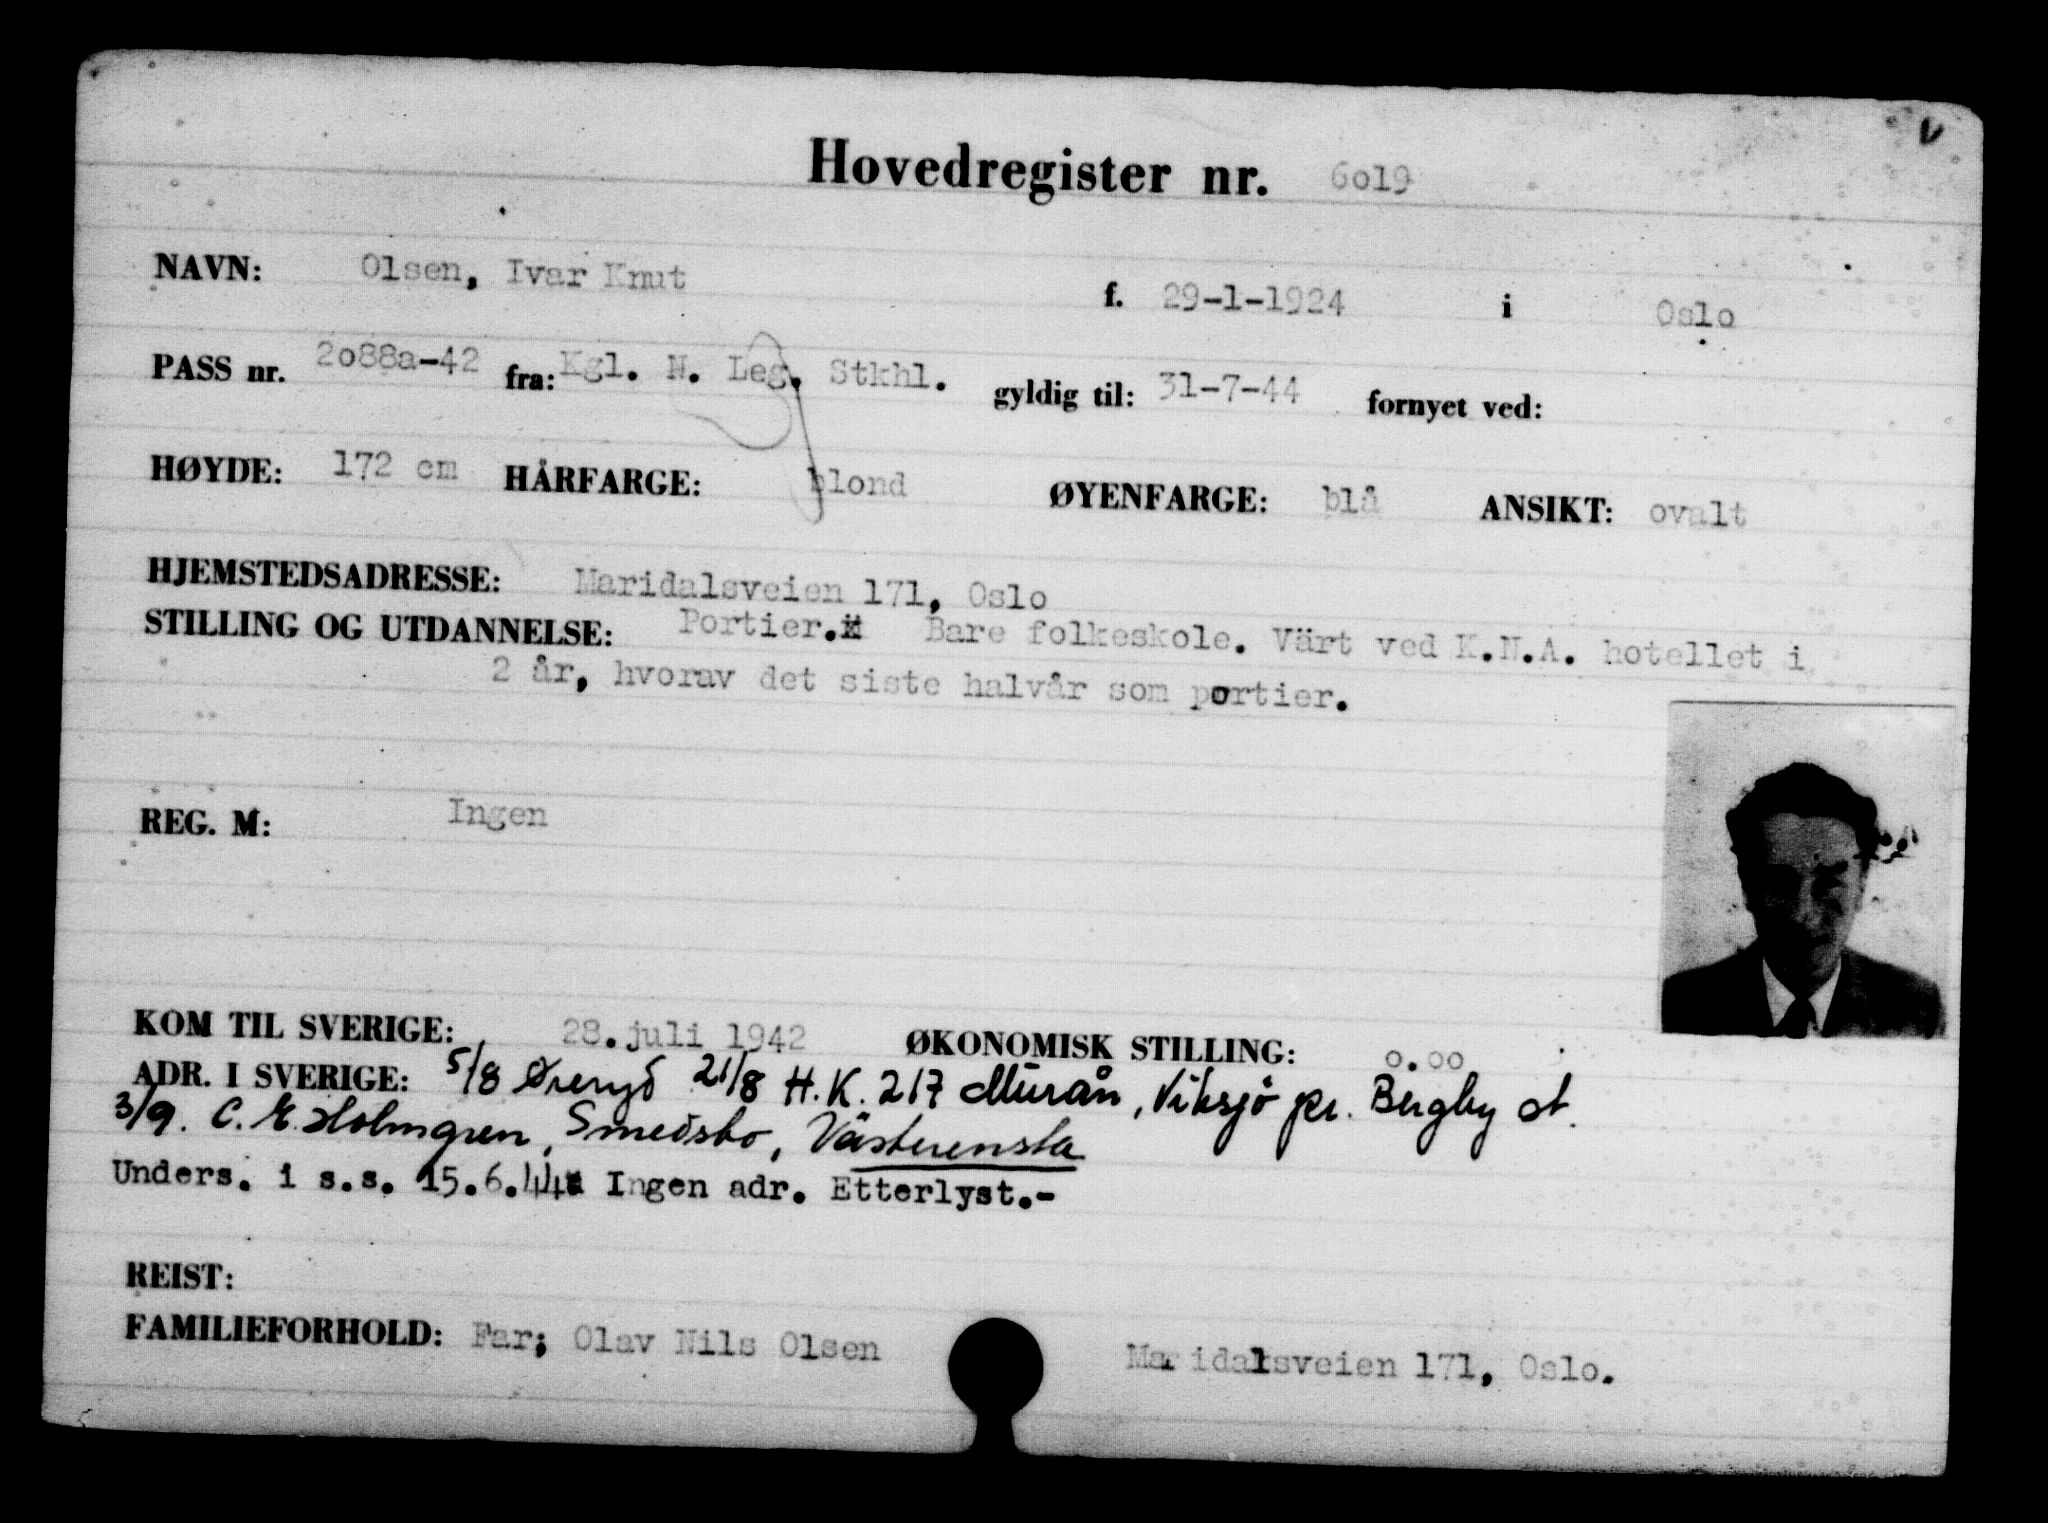 Hovedregister nr. 6o19
NAVN: Olsen, Ivar Knut f. 29-1-1924 i Oslo
PASS nr. 2o88a-42 fra: Kgl. N. Leg. Stkhl. gyldig til: 31-7-44 fornyet ved:
HØYDE: 172 cm HÅRFARGE: blond ØYENFARGE: blå ANSIKT: ovalt
HJEMSTEDSADRESSE: Maridalsveien 171, Oslo
STILLING OG UTDANNELSE: Portier. Bare folkeskole. Värt ved K.N.A. hotellet i
2 år, hvorav det siste halvår som portier.
REG. M: Ingen
KOM TIL SVERIGE: 28.juli 1942 ØKONOMISK STILLING: o.oo
ADR. I SVERIGE: 5/8 Øreryd 21/8 H.K. 217 Murån, Viksjö pr. Bergby st.
3/9. C. E. Holmgren, Smedsbo, Västerensta
Unders. i s.s. 15.6.44 Ingen adr. Etterlyst.-
REIST:
FAMILIEFORHOLD: Far; Olav Nils Olsen Maridalsveien 171, Oslo.